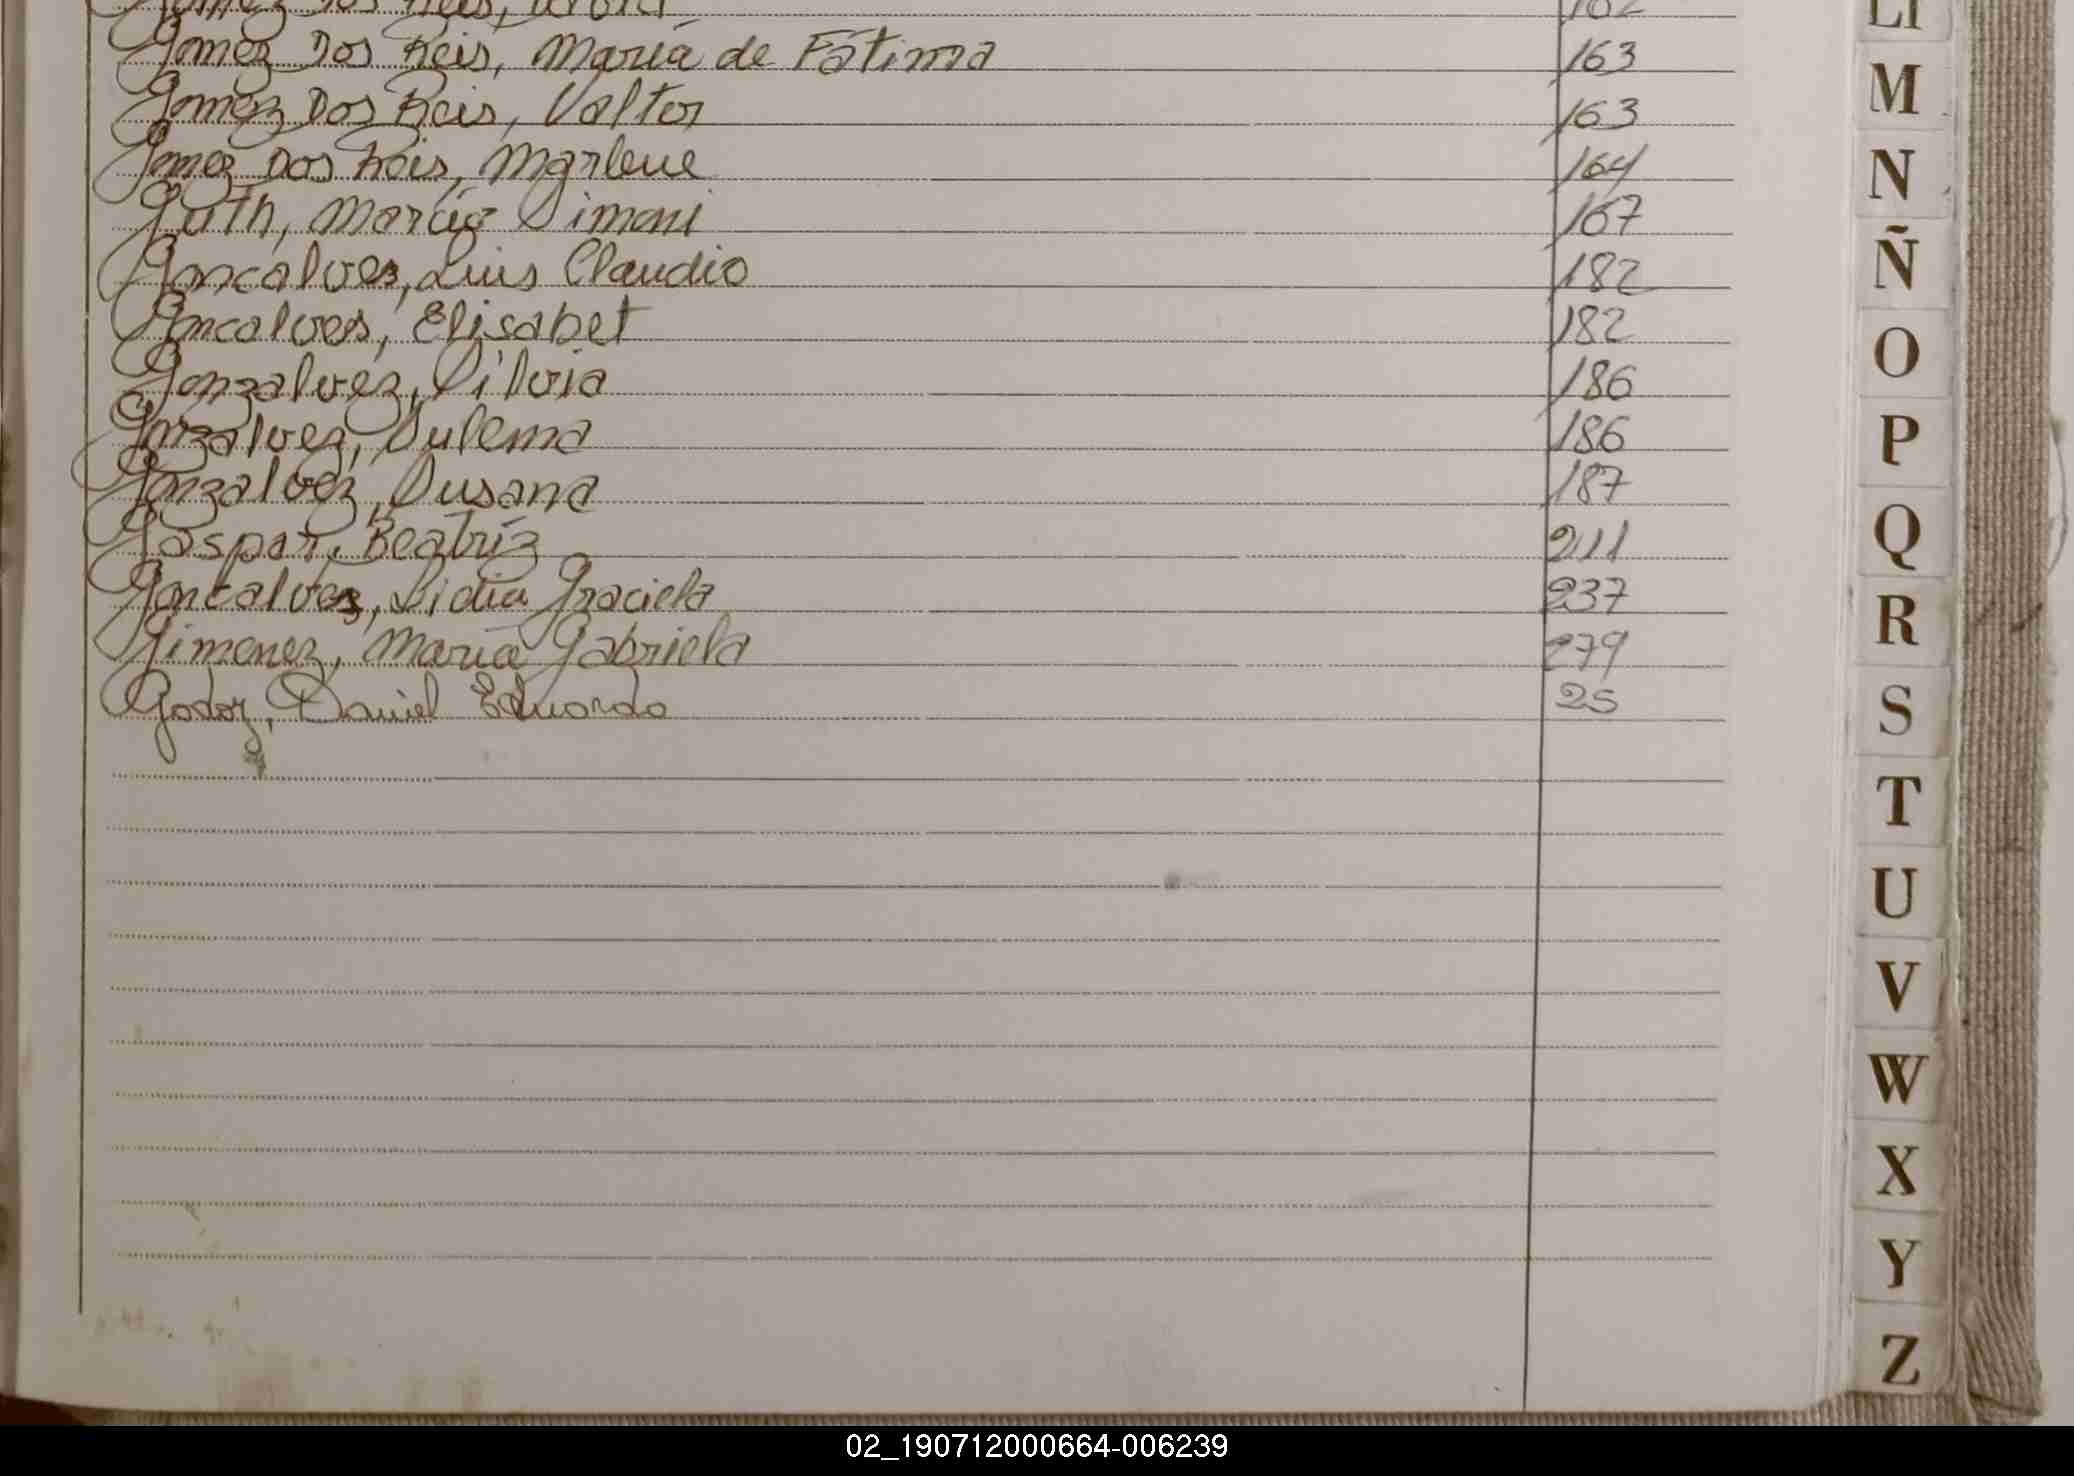 Gomez Dos Reis, 162
Gomez Dos Reis, María de Fátima 163
Gomez Dos Reis, Valter 163
Gomez Dos Reis, Marlene 164
Guth, Marcia Simoni 167
Goncalves, Luis Claudio 182
Goncalves, Elisabet 182
Gonzalvez, Silvia 186
Gonzalvez, Sulema 186
Gonzalvez, Susana 187
Gaspar, Beatríz 211
Goncalves, Lidia Graciela 237
Gimenez, María Gabriela 279
Godoy, Daniel Eduardo 25
Ll
M
N
Ñ
O
P
Q
R
S
T
U
V
W
X
Y
Z
02_190712000664-006239